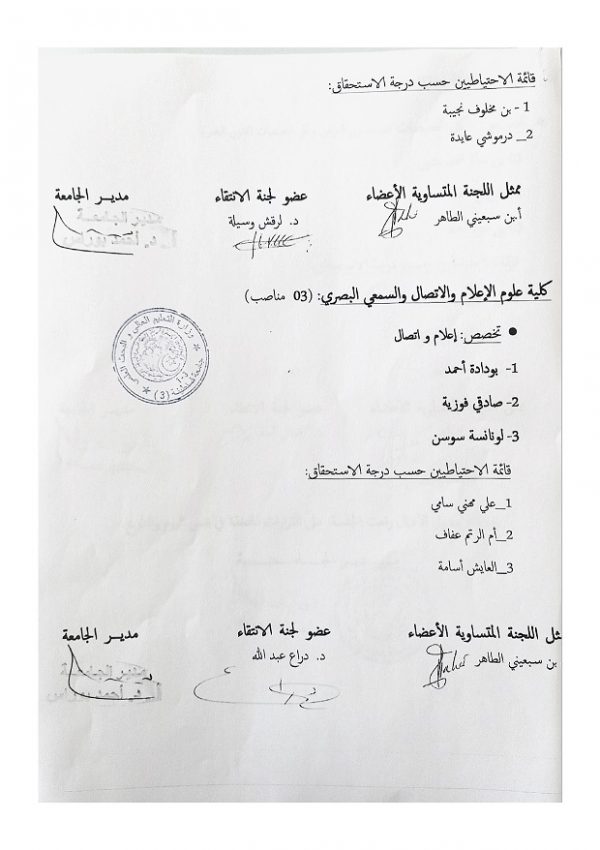 قائمة الاحتياطيين حسب درجة الاستحقاق:
1 - بن مخلوف نجيبة
2_ درموشي عايدة
ممثل اللجنة المتساوية الأعضاء عضو لجنة الانتقاء مدير الجامعة
أ.بن سبعيني الطاهر د. لرقش وسيلة
مدير الجامعة
كلية علوم الإعلام والاتصال والسمعي البصري: (03 مناصب)
وزارة التعليم العالي و البحث العلمي
(3)
● تخصص: إعلام و اتصال
1- بودادة أحمد
2- صادقي فوزية
3- لونانسة سوسن
قائمة الاحتياطيين حسب درجة الاستحقاق:
1_علي مهني سامي
2_أم الرتم عفاف
3_العايش أسامة
ثل اللجنة المتساوية الأعضاء عضو لجنة الانتقاء مدير الجامعة
بن سبعيني الطاهر د. دراع عبد الله
مدير الجامعة